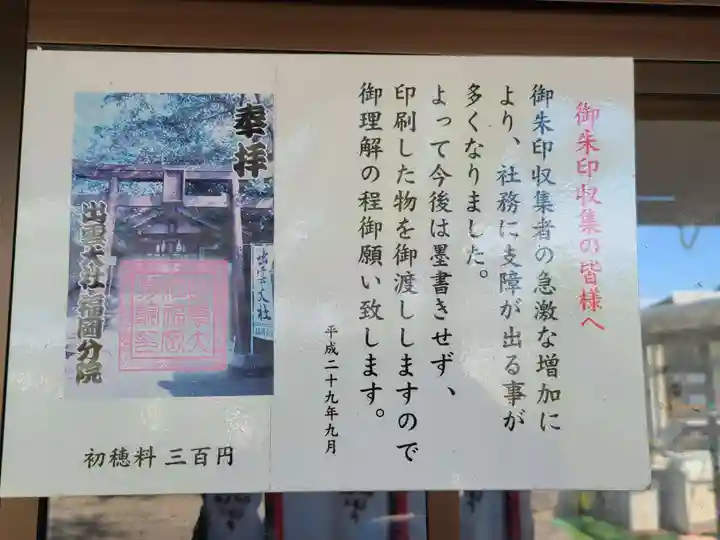 御朱印収集の皆様へ
御朱印収集者の急激な増加に
より、社務に支障が出る事が
多くなりました。
よって今後は墨書きせず、
印刷した物を御渡ししますので
御理解の程御願い致します。
平成二十九年九月
奉拝
出雲大社
出雲大社福岡分院
初穂料 三百円